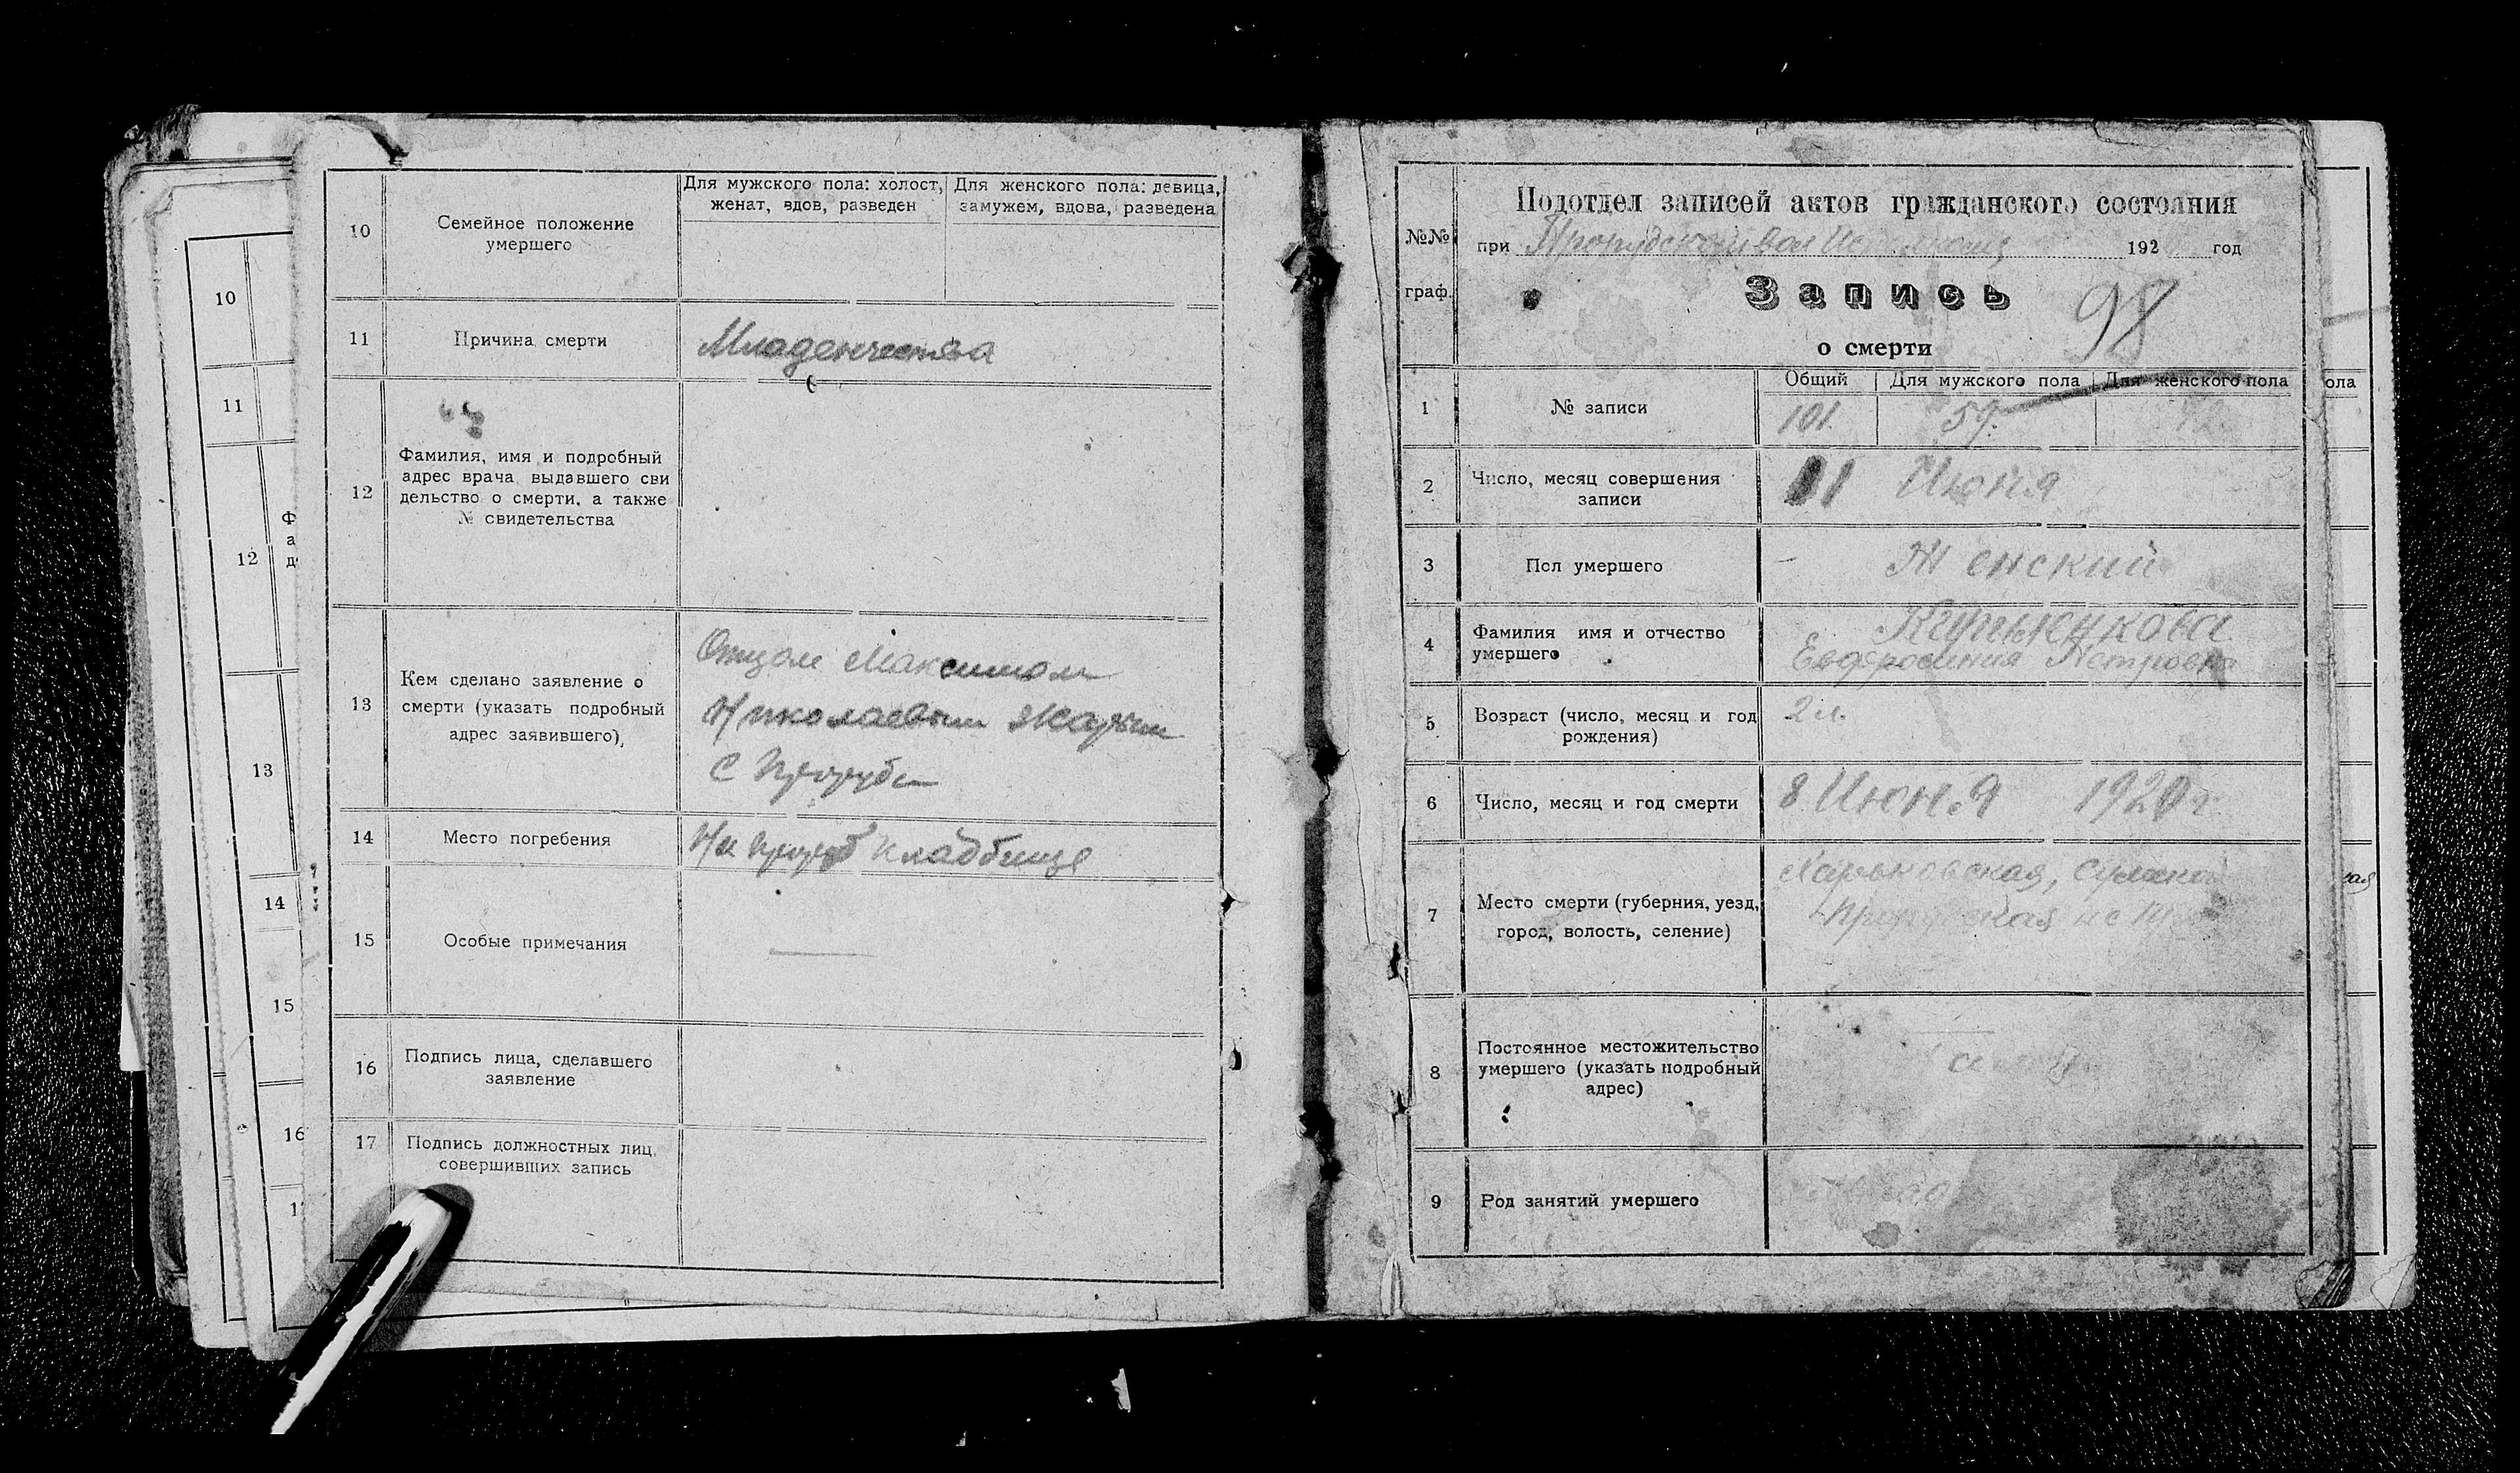 10
Семейное положение
умершего
Для мужского пола: холост,
женат, вдов, разведен
Для женского пола: девица,
замужем, вдова, разведена
11
Причина смерти
Младенчества
12
Фамилия, имя и подробный
адрес врача выдавшего сви
дельство о смерти, а также
№ свидетельства
13
Кем сделано заявление о
смерти (указать подробный
адрес заявившего)
Отцом Максимом
Николаевым
с
14
Место погребения
На кладбище
15
Особые примечания
16
Подпись лица, сделавшего
заявление
17
Подпись должностных лиц,
совершивших запись
10
11
12
13
14
15
16
№№
граф.
Подотдел записей актов гражданского состояния
при 192 год
Запись
98
о смерти
1
№ записи
Общий
Для мужского пола
Для женского пола
101.
59.
2
Число, месяц совершения
записи
11 Июня
3
Пол умершего
Женский
4
Фамилия имя и отчество
умершего
Евфросиния Петровна
5
Возраст (число, месяц и год
рождения)
6
Число, месяц и год смерти
8 Июня 1920 г.
7
Место смерти (губерния, уезд,
город, волость, селение)
Харьковская,
8
Постоянное местожительство
умершего (указать подробный
адрес)
9
Род занятий умершего
ола